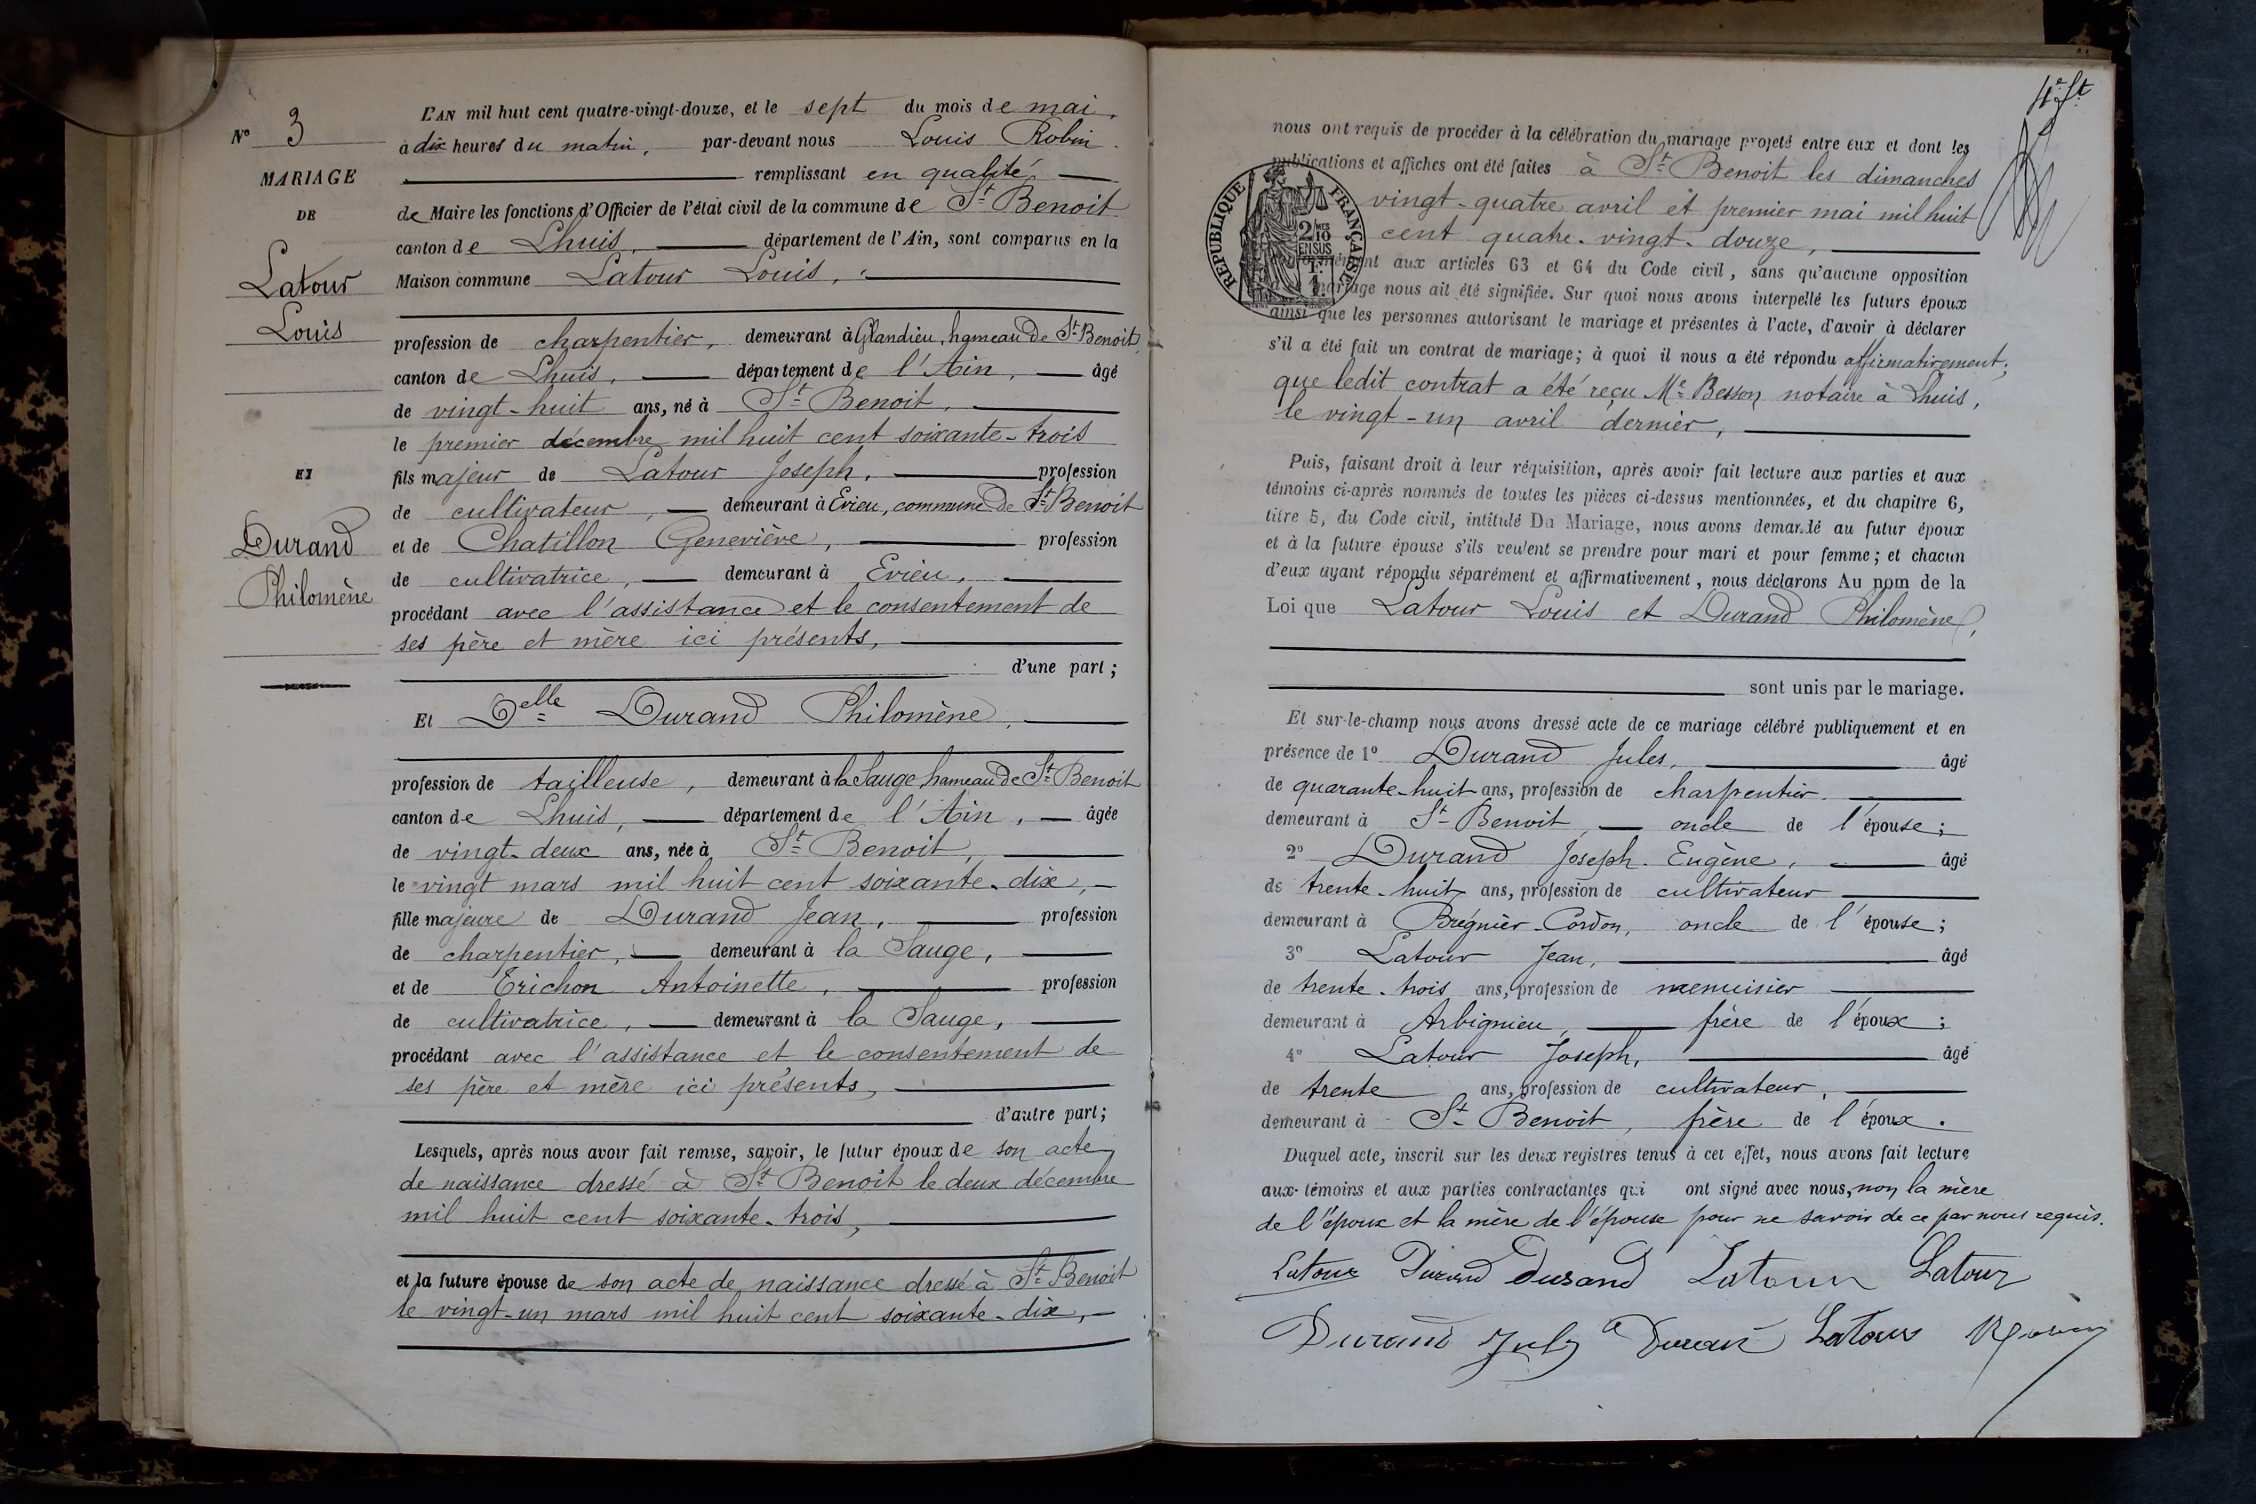 N° 3
MARIAGE
DE
Latour
Louis
ET
Durand
Philomène
L'AN mil huit cent quatre-vingt-douze, et le sept du mois de mai,
à dix heures du matin, par-devant nous Louis Robin
remplissant en qualité
de Maire les fonctions d'Officier de l'état civil de la commune de St Benoit
canton de Lhuis, département de l'Ain, sont comparus en la
Maison commune Latour Louis,
profession de charpentier, demeurant à Glandieu, hameau de St Benoit,
canton de Lhuis, département de l'Ain, âgé
de vingt-huit ans, né à St Benoit,
le premier décembre mil huit cent soixante-trois
fils majeur de Latour Joseph, profession
de cultivateur, demeurant à Evieu, commune de St Benoit
et de Chatillon Geneviève, profession
de cultivatrice, demeurant à Evieu,
procédant avec l'assistance et le consentement de
ses père et mère ici présents,
d'une part;
Et Delle Durand Philomène,
profession de tailleuse, demeurant à la Sauge, hameau de St Benoit
canton de Lhuis, département de l'Ain, âgée
de vingt-deux ans, née à St Benoit,
le vingt mars mil huit cent soixante-dix,
fille majeure de Durand Jean, profession
de charpentier, demeurant à la Sauge,
et de Trichon Antoinette, profession
de cultivatrice, demeurant à la Sauge,
procédant avec l'assistance et le consentement de
ses père et mère ici présents,
d'autre part;
Lesquels, après nous avoir fait remise, savoir, le futur époux de son acte
de naissance dressé à St Benoit le deux décembre
mil huit cent soixante-trois,
et la future épouse de son acte de naissance dressé à St Benoit
le vingt-un mars mil huit cent soixante-dix,
nous ont requis de procéder à la célébration du mariage projeté entre eux et dont les
publications et affiches ont été faites à St Benoit les dimanches
vingt-quatre avril et premier mai mil huit
cent quatre-vingt-douze,
RÉPUBLIQUE FRANÇAISE
2 10MES
EN SUS
aux articles 63 et 64 du Code civil, sans qu'aucune opposition
mariage nous ait été signifiée. Sur quoi nous avons interpellé les futurs époux
ainsi que les personnes autorisant le mariage et présentes à l'acte, d'avoir à déclarer
s'il a été fait un contrat de mariage; à quoi il nous a été répondu affirmativement;
que ledit contrat a été reçu Me Besson notaire à Lhuis,
le vingt-un avril dernier,
Puis, faisant droit à leur réquisition, après avoir fait lecture aux parties et aux
témoins ci-après nommés de toutes les pièces ci-dessus mentionnées, et du chapitre 6,
titre 5, du Code civil, intitulé Du Mariage, nous avons demandé au futur époux
et à la future épouse s'ils veulent se prendre pour mari et pour femme; et chacun
d'eux ayant répondu séparément et affirmativement, nous déclarons Au nom de la
Loi que Latour Louis et Durand Philomène,
sont unis par le mariage.
Et sur-le-champ nous avons dressé acte de ce mariage célébré publiquement et en
présence de 1° Durand Jules, âgé
de quarante-huit ans, profession de charpentier
demeurant à St Benoit, oncle de l'épouse;
2° Durand Joseph-Eugène, âgé
de trente-huit ans, profession de cultivateur
demeurant à Brégnier-Cordon, oncle de l'épouse;
3° Latour Jean, âgé
de trente-trois ans, profession de menuisier
demeurant à Arbignieu, frère de l'époux;
4° Latour Joseph, âgé
de trente ans, profession de cultivateur,
demeurant à St Benoit, frère de l'époux.
Duquel acte, inscrit sur les deux registres tenus à cet effet, nous avons fait lecture
aux témoins et aux parties contractantes qui ont signé avec nous, non la mère
de l'époux et la mère de l'épouse pour ne savoir de ce par nous requis.
Latour Durand Durand Latour Latour
Durand July Durand Latour Robin